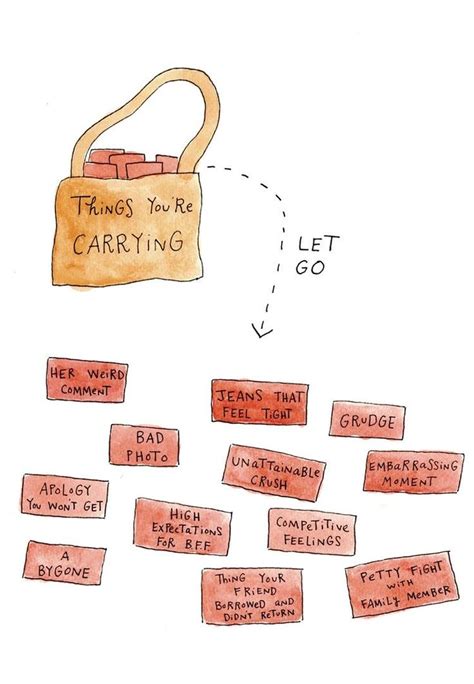 Things You're
CARRYING
LET
GO
HER WEIRD
COMMENT
JEANS THAT
FEEL TIGHT
GRUDGE
BAD
PHOTO
UNATTAINABLE
CRUSH
EMBARRASSING
MOMENT
APOLOGY
YOU WON'T GET
HIGH
EXPECTATIONS
FOR B.F.F
COMPETITIVE
FEELINGS
A
BYGONE
THING YOUR
FRIEND
BORROWED AND
DIDN'T RETURN
PETTY FIGHT
WITH
FAMILY MEMBER